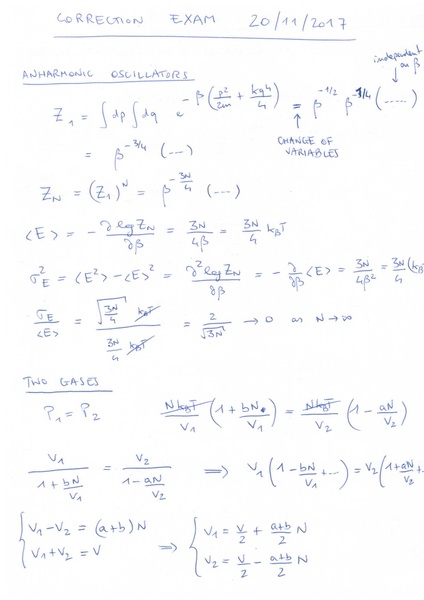 CORRECTION EXAM 20/11/2017
ANHARMONIC OSCILLATORS
independent on β
Z₁ = ∫dp ∫dq e^{-β(p²/2m + kq⁴/4)} = β^{-1/2} β^{-1/4} (.....)
CHANGE OF VARIABLES
= β^{-3/4} (---)
Z_N = (Z₁)^N = β^{-3N/4} (---)
⟨E⟩ = - ∂log Z_N/∂β = 3N/4β = 3N/4 k_BT
σ_E² = ⟨E²⟩ - ⟨E⟩² = ∂²log Z_N/∂β = - ∂/∂β ⟨E⟩ = 3N/4β² = 3N/4 (k_B
σ_E/⟨E⟩ = √(3N/4) k_BT / (3N/4 k_BT) = 2/√3N → 0 as N → ∞
TWO GASES
P₁ = P₂ Nk_BT/V₁ (1 + bN/V₁) = Nk_BT/V₂ (1 - aN/V₂)
V₁/(1 + bN/V₁) = V₂/(1 - aN/V₂) ⟹ V₁(1 - bN/V₁ + ...) = V₂(1 + aN/V₂ + .
{ V₁ - V₂ = (a+b) N ⟹ { V₁ = V/2 + (a+b)/2 N
V₁ + V₂ = V V₂ = V/2 - (a+b)/2 N